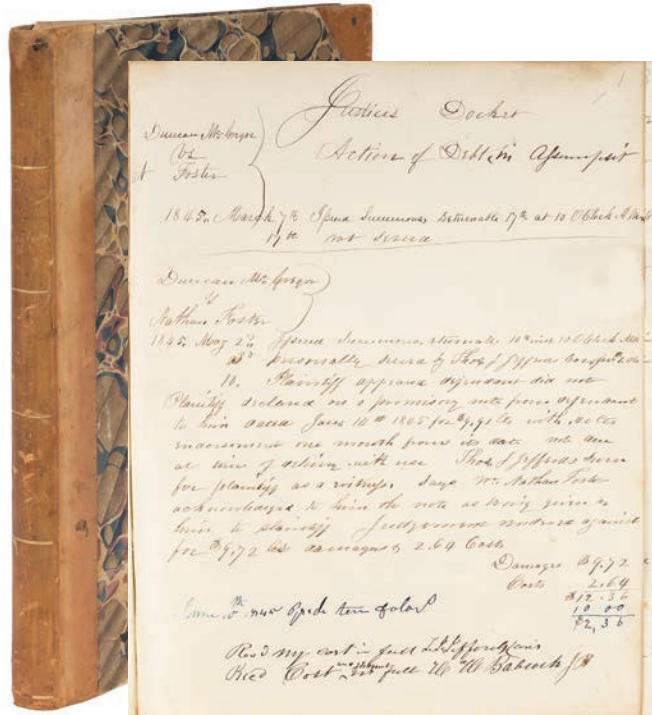 Justices Docket
Duncan McGregor
vs
Foster
Action of Debt in Assumpsit
1845. March 7th Issued Summons, Returnable 17th at 10 O'Clock A
17th not served
Duncan McGregor
vs
Nathan Foster
1845. May 2nd Issued Summons, returnable 10th inst 10 O'Clock
personally served by Thos J Jeffords
10. Plaintiff appeared defendant did not
Plaintiff declared on a promissory note from defendant
to him dated 10th for $9.91 cts with
endorsement one month from its date note due
at time of with use Thos J Jeffords sworn
for plaintiff as a witness. Says Nathan Foster
acknowledged to him the note as being given by
him to plaintiff Judgement rendered against
for $9.72 cts damages & 2.64 Costs
Damages $9.72
Costs 2.64
$12.36
10 00
$2,36
June
Recd my cost in full
Recd Cost in full H H Babcock J P